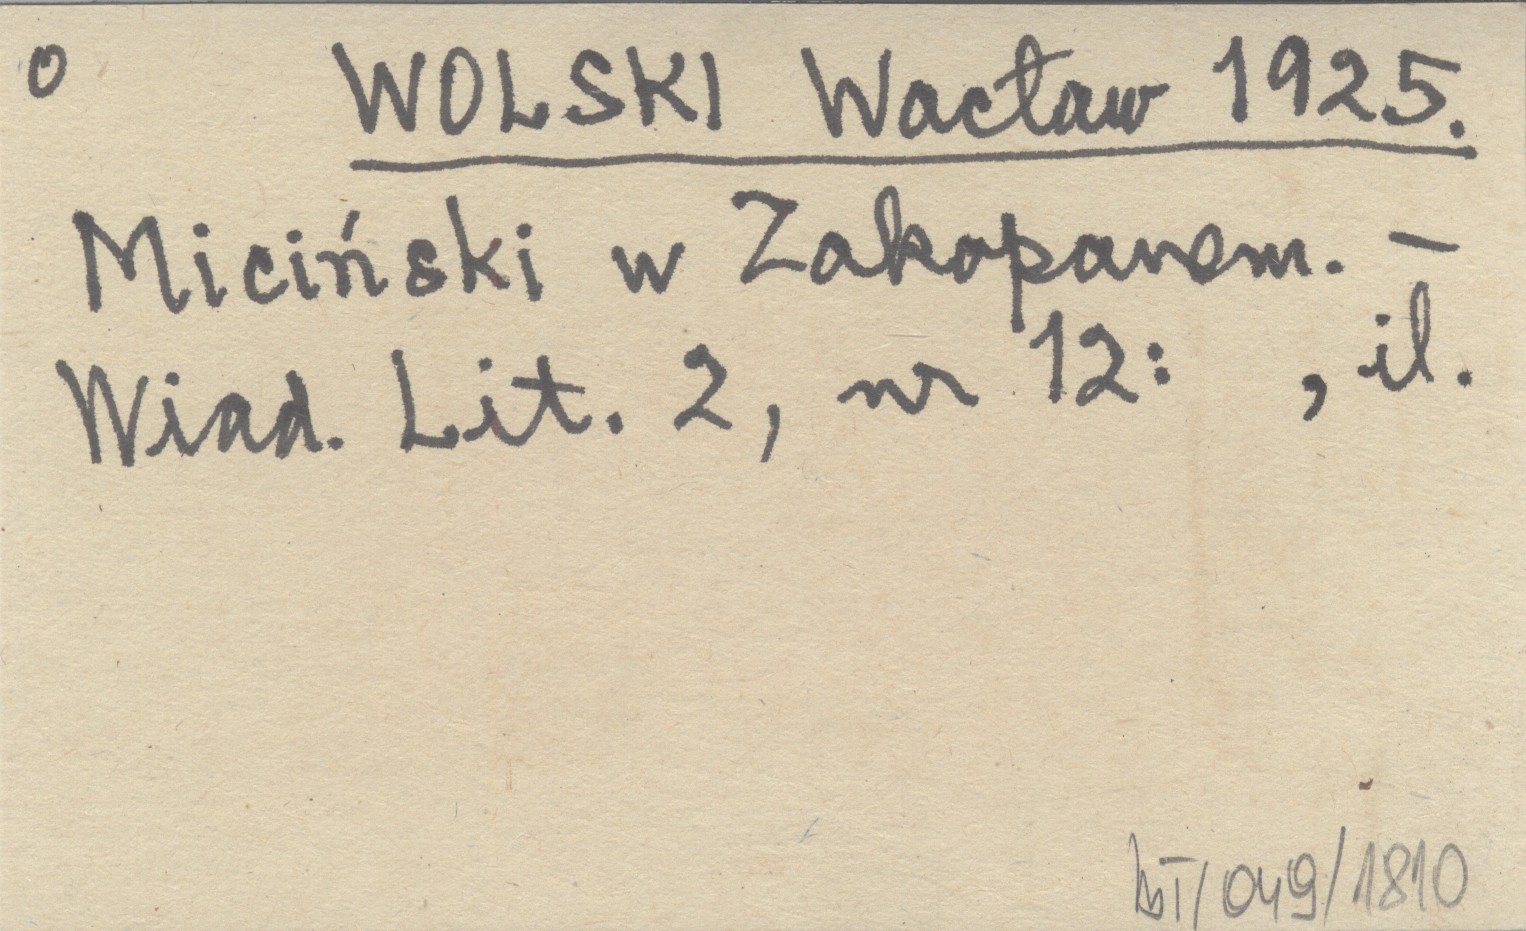 o WOLSKI Wacław 1925.
Miciński w Zakopanem. –
Wiad. Lit. 2, nr 12: , il.
bT/049/1810